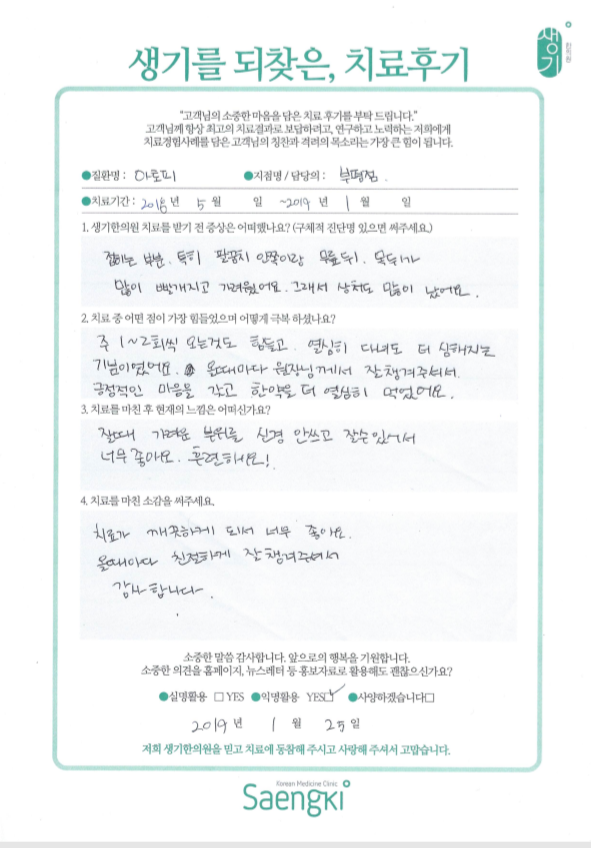 생기를 되찾은, 치료후기
생기
한의원
"고객님의 소중한 마음을 담은 치료 후기를 부탁 드립니다."
고객님께 항상 최고의 치료결과로 보답하려고, 연구하고 노력하는 저희에게
치료경험사례를 담은 고객님의 칭찬과 격려의 목소리는 가장 큰 힘이 됩니다.
●질환명 : 아토피 ●지점명 / 담당의 : 부평점.
●치료기간 : 2018년 5월 일 ~2019년 1월 일
1. 생기한의원 치료를 받기 전 증상은 어떠했나요? (구체적 진단명 있으면 써주세요.)
접히는 부분. 특히 팔꿈치 안쪽이랑 무릎 뒤. 목뒤가
많이 빨개지고 가려웠어요. 그래서 상처도 많이 났어요.
2. 치료 중 어떤 점이 가장 힘들었으며 어떻게 극복 하셨나요?
주 1~2회씩 오는것도 힘들고. 열심히 다녀도 더 심해지는
기분이었어요. 올때마다 원장님께서 잘 챙겨주셔서.
긍정적인 마음을 갖고 한약을 더 열심히 먹었어요.
3. 치료를 마친 후 현재의 느낌은 어떠신가요?
잘때 가려운 부위를 신경 안쓰고 잘수있어서
너무 좋아요.
4. 치료를 마친 소감을 써주세요.
치료가 깨끗하게 되서 너무 좋아요.
올때마다 친절하게 잘 챙겨주셔서
감사합니다.
소중한 말씀 감사합니다. 앞으로의 행복을 기원합니다.
소중한 의견을 홈페이지, 뉴스레터 등 홍보자료로 활용해도 괜찮으신가요?
●실명활용 □ YES ●익명활용 YES☑ ●사양하겠습니다□
2019년 1월 25일
저희 생기한의원을 믿고 치료에 동참해 주시고 사랑해 주셔서 고맙습니다.
Korean Medicine Clinic
Saengki